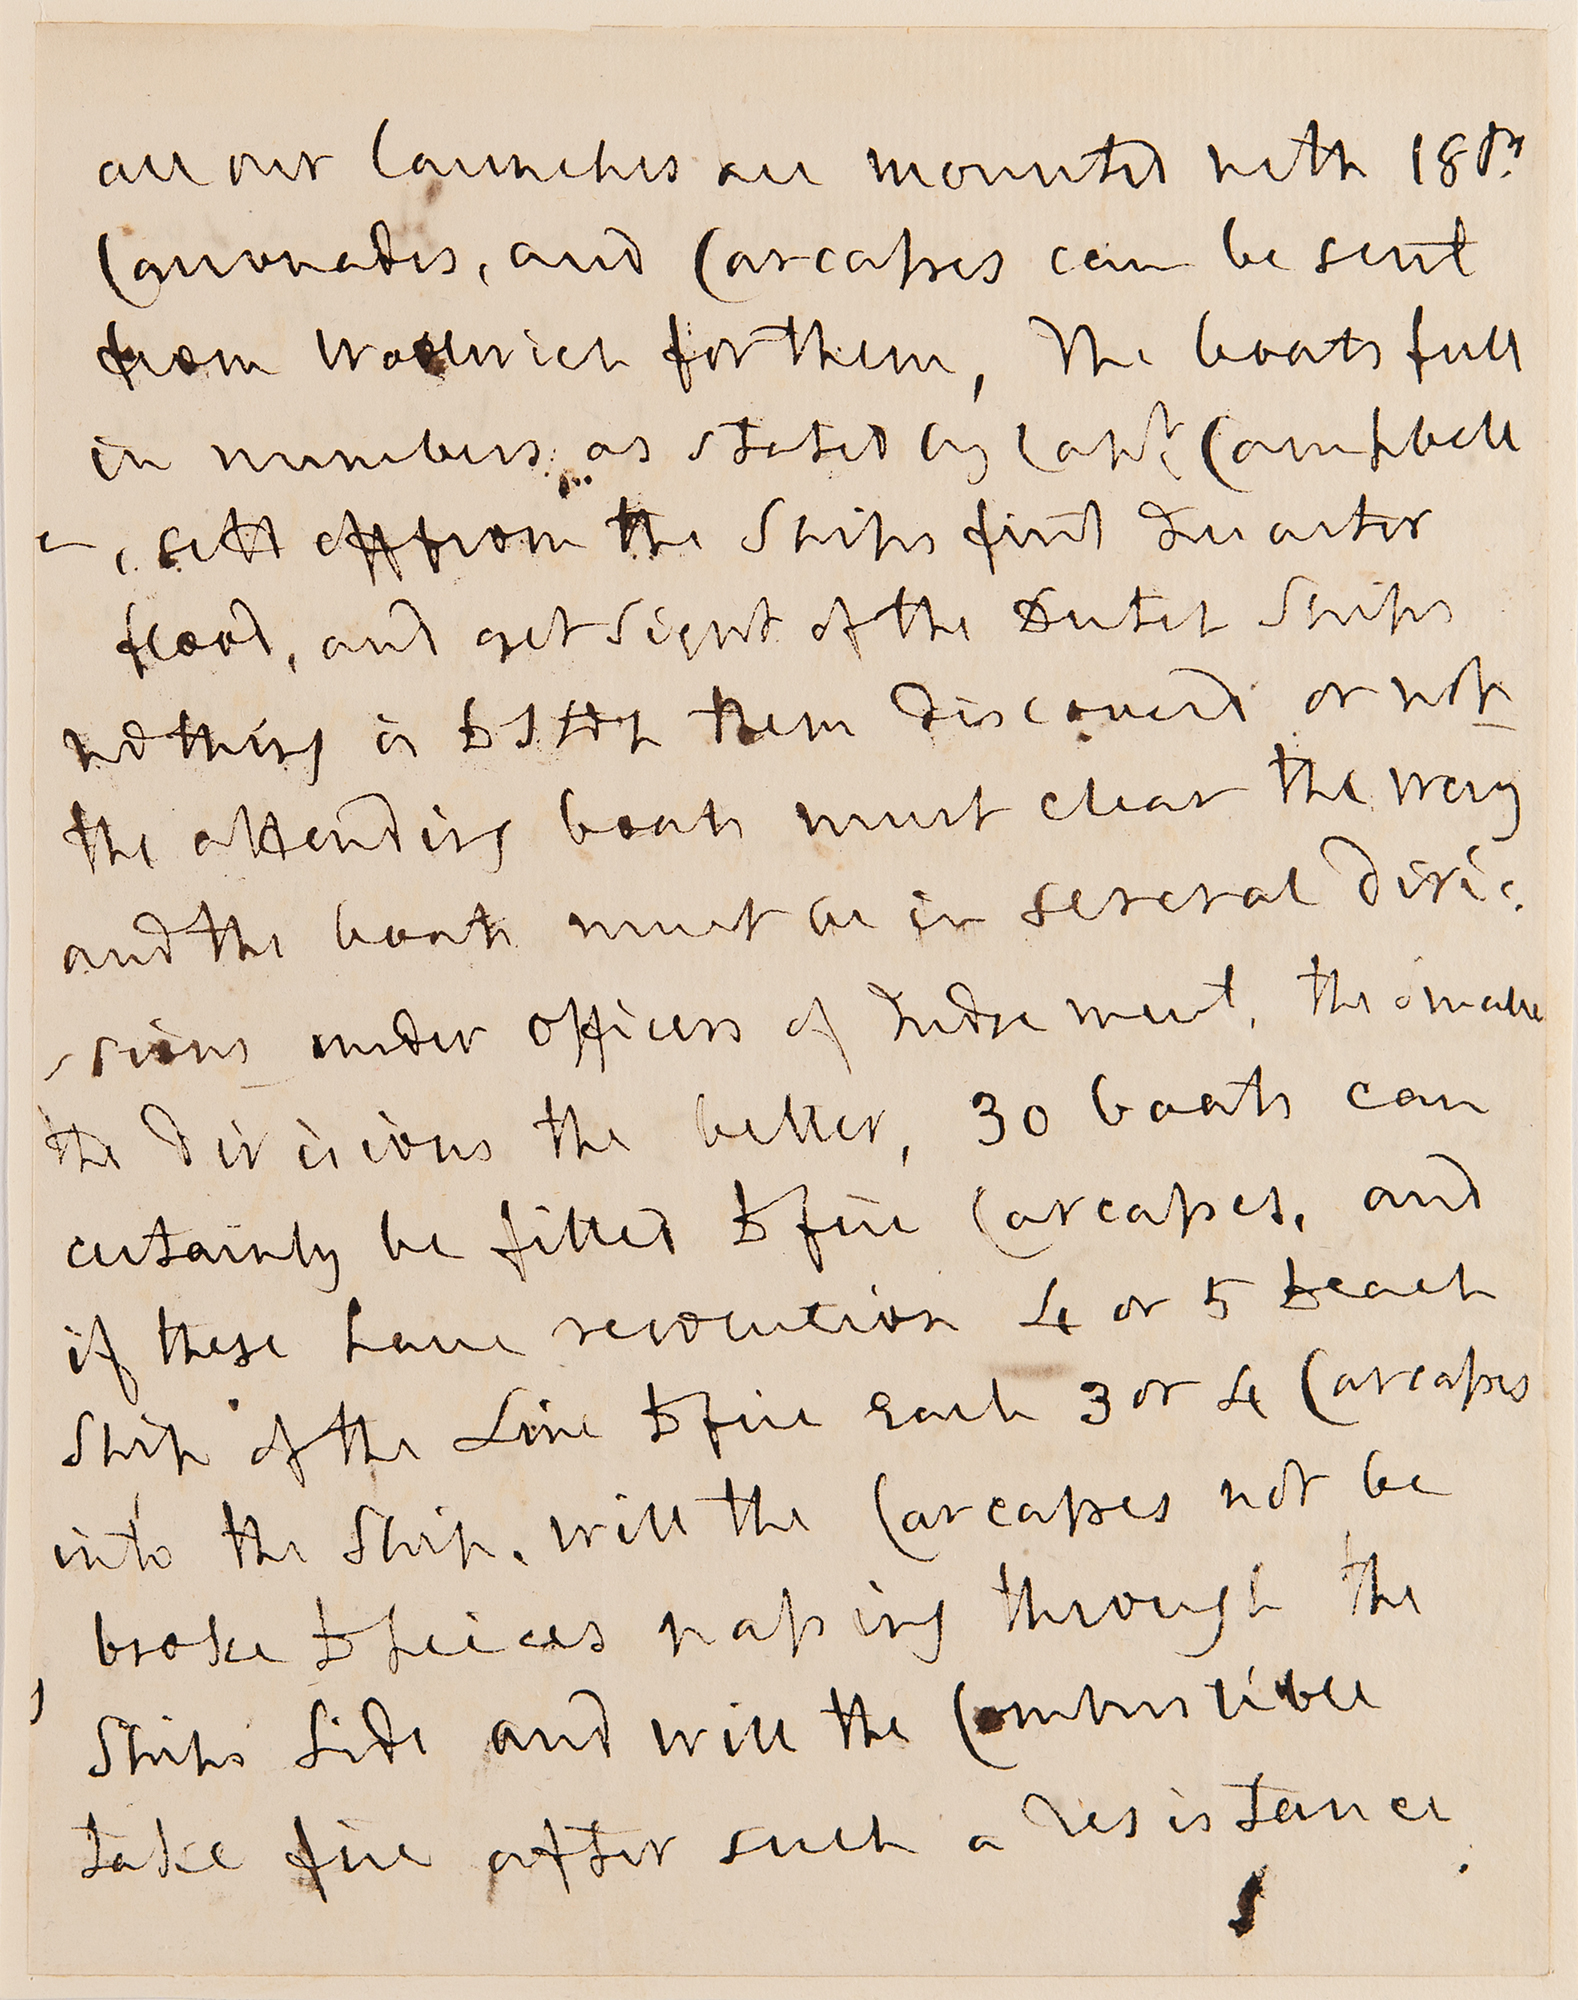 all our launches are mounted with 18 prs
Carronades, and Carcasses can be sent
from Woolwich for them, The boats full
in numbers as stated by Capt. Campbell
sett off from the Ships first Quarter
flood, and get Sight of the Dutch Ships
nothing is to stop them discovered or not
the attending boats must clear the way
and the boats must be in several divi:
sions under officers of Judgement, the smaller
the divisions the better, 30 boats can
certainly be fitted to fire Carcasses, and
if these have resolution 4 or 5 to each
Ship of the Line to fire each 3 or 4 Carcasses
into the Ship, will the Carcasses not be
broke to peices passing through the
Ships Side and will the Combustible
take fire after such a resistance.